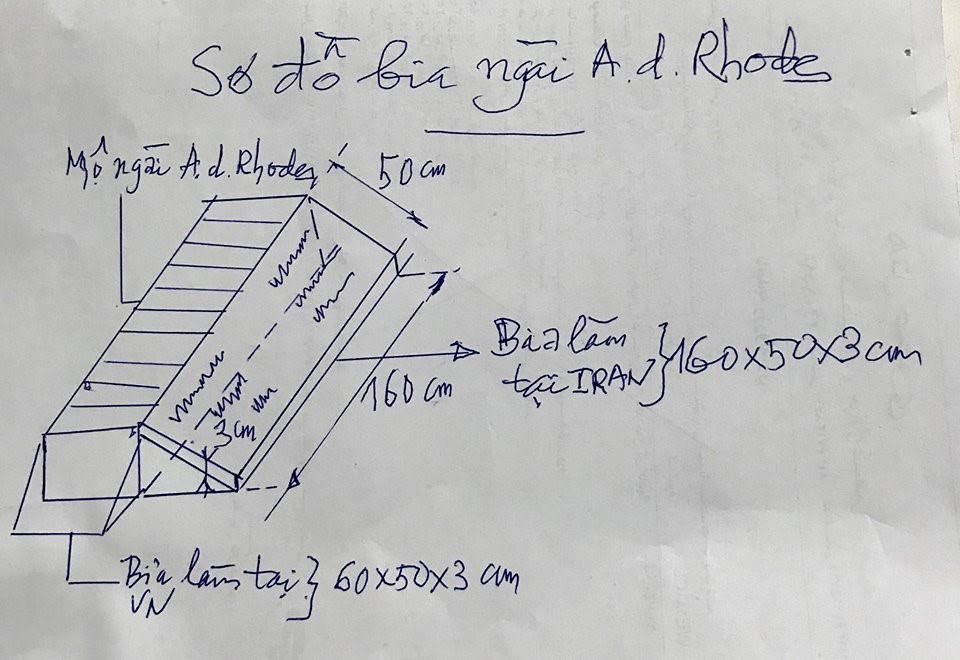 Sơ đồ bia ngài A.d.Rhodes
Mộ ngài A.d.Rhodes
50 cm
Bia làm
tại IRAN } 160x50x3 cm
160 cm
3 cm
Bia làm tại
VN } 60x50x3 cm